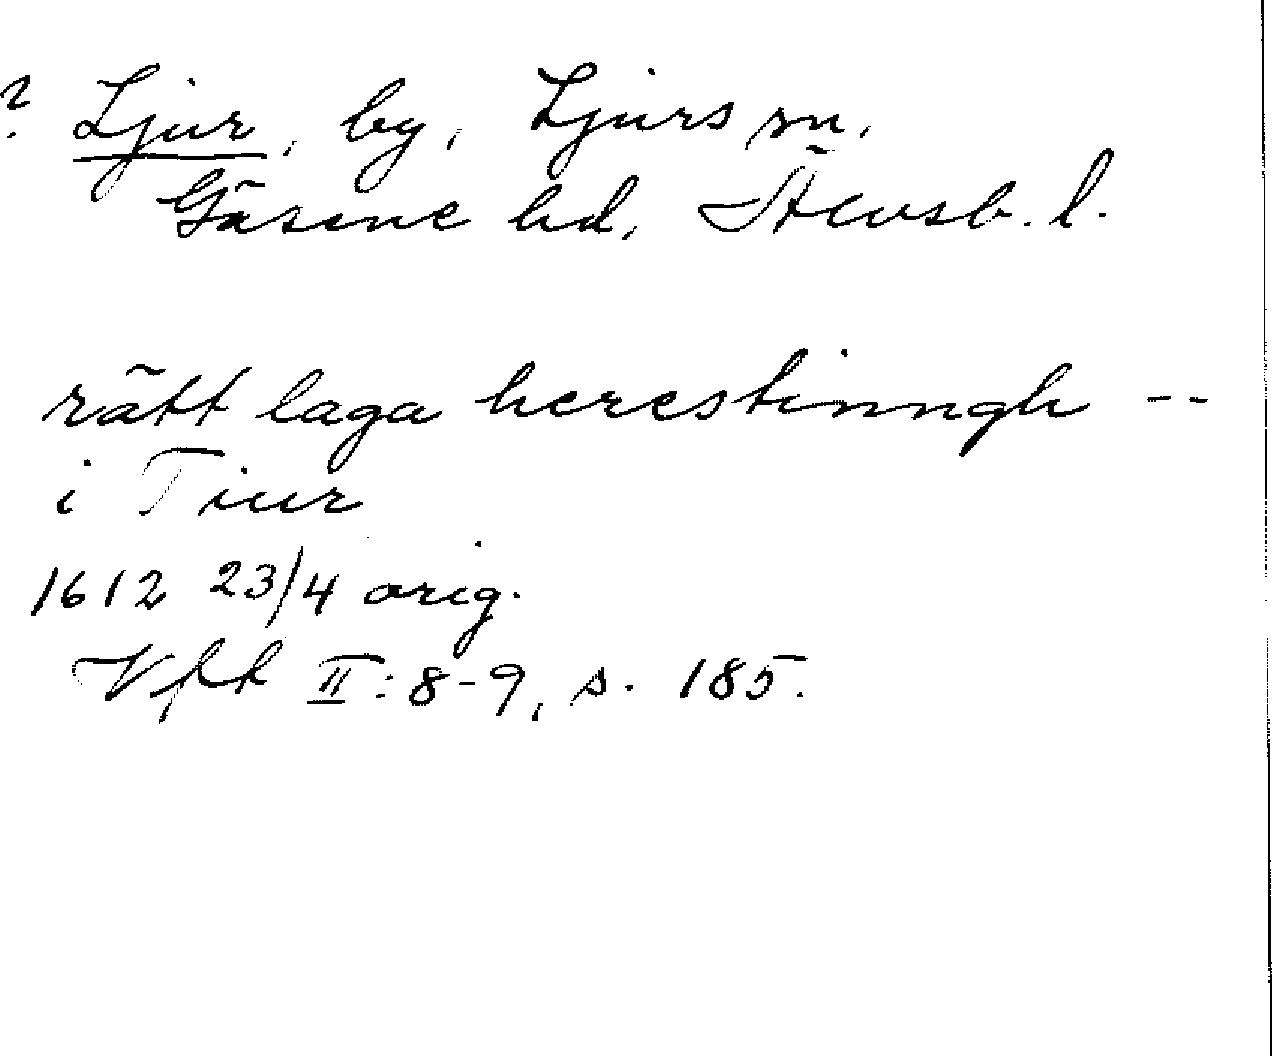 ? Ljur, by, Ljurs sn,
Gäsene hd, Älvsb. l.
rätt laga herestinngh --
i Tiur
1612 23/4 orig.
Vfft II: 8-9, s. 185.